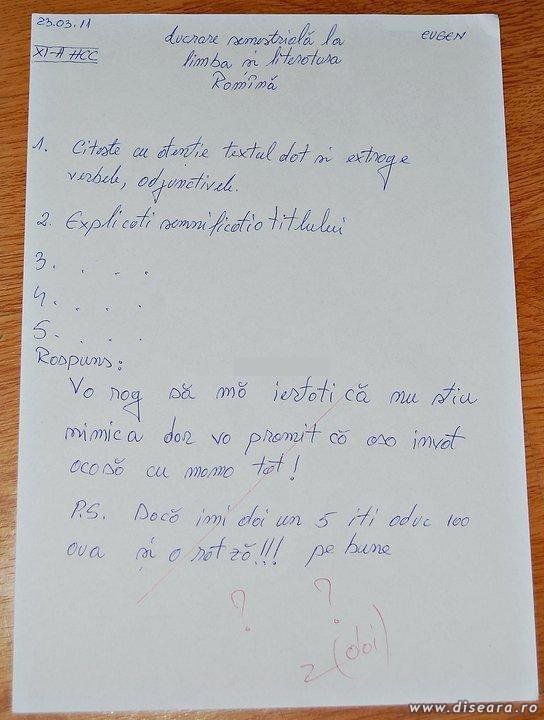 23.03.11
EUGEN
XI-A HCC
Lucrare semestrială la
limba si literotura
Romînă
1. Citeste cu otenție textul dot si extroge
verbele, odjunctivele.
2. Explicoti semnificotio titlului
3. . . .
4. . . .
5. . . .
Rospuns:
Vo rog să mă iertoti că nu stiu
mimica dor vo promit că oso invot
ocosă cu momo tot!
P.S. Docă imi doi un 5 iti oduc 100
ova și o rotză!!! pe bune
? ?
2 (doi)
www.diseara.ro